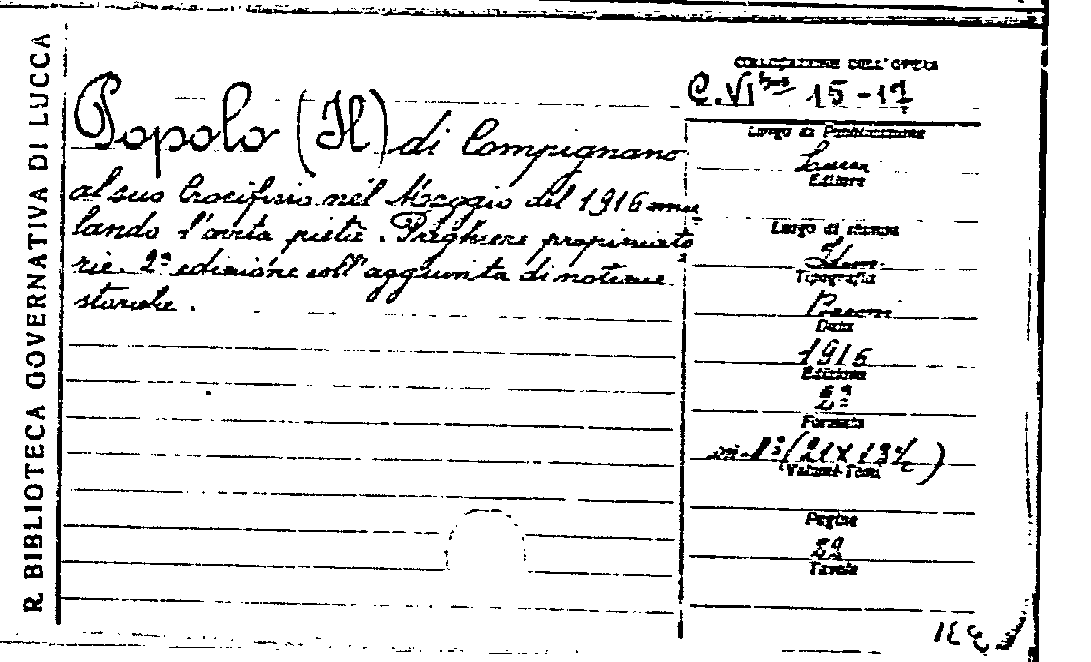 R. BIBLIOTECA GOVERNATIVA DI LUCCA
Popolo (Il) di Compignano
al suo Crocifisso nel Maggio del 1916
lando l'avita pietà. Preghiere propiziato
rie. 2ª edizione coll'aggiunta di notizie
storiche.
COLLOCAZIONE DELL'OPERA
C. VI 15-17
Luogo di Pubblicazione
Lucca
Editore
Luogo di stampa
Idem.
Tipografia
Baroni
Data
1916
Edizione
2ª
Formato
in-8º (21X13½)
Volumi-Tomi
Pagine
Tavole